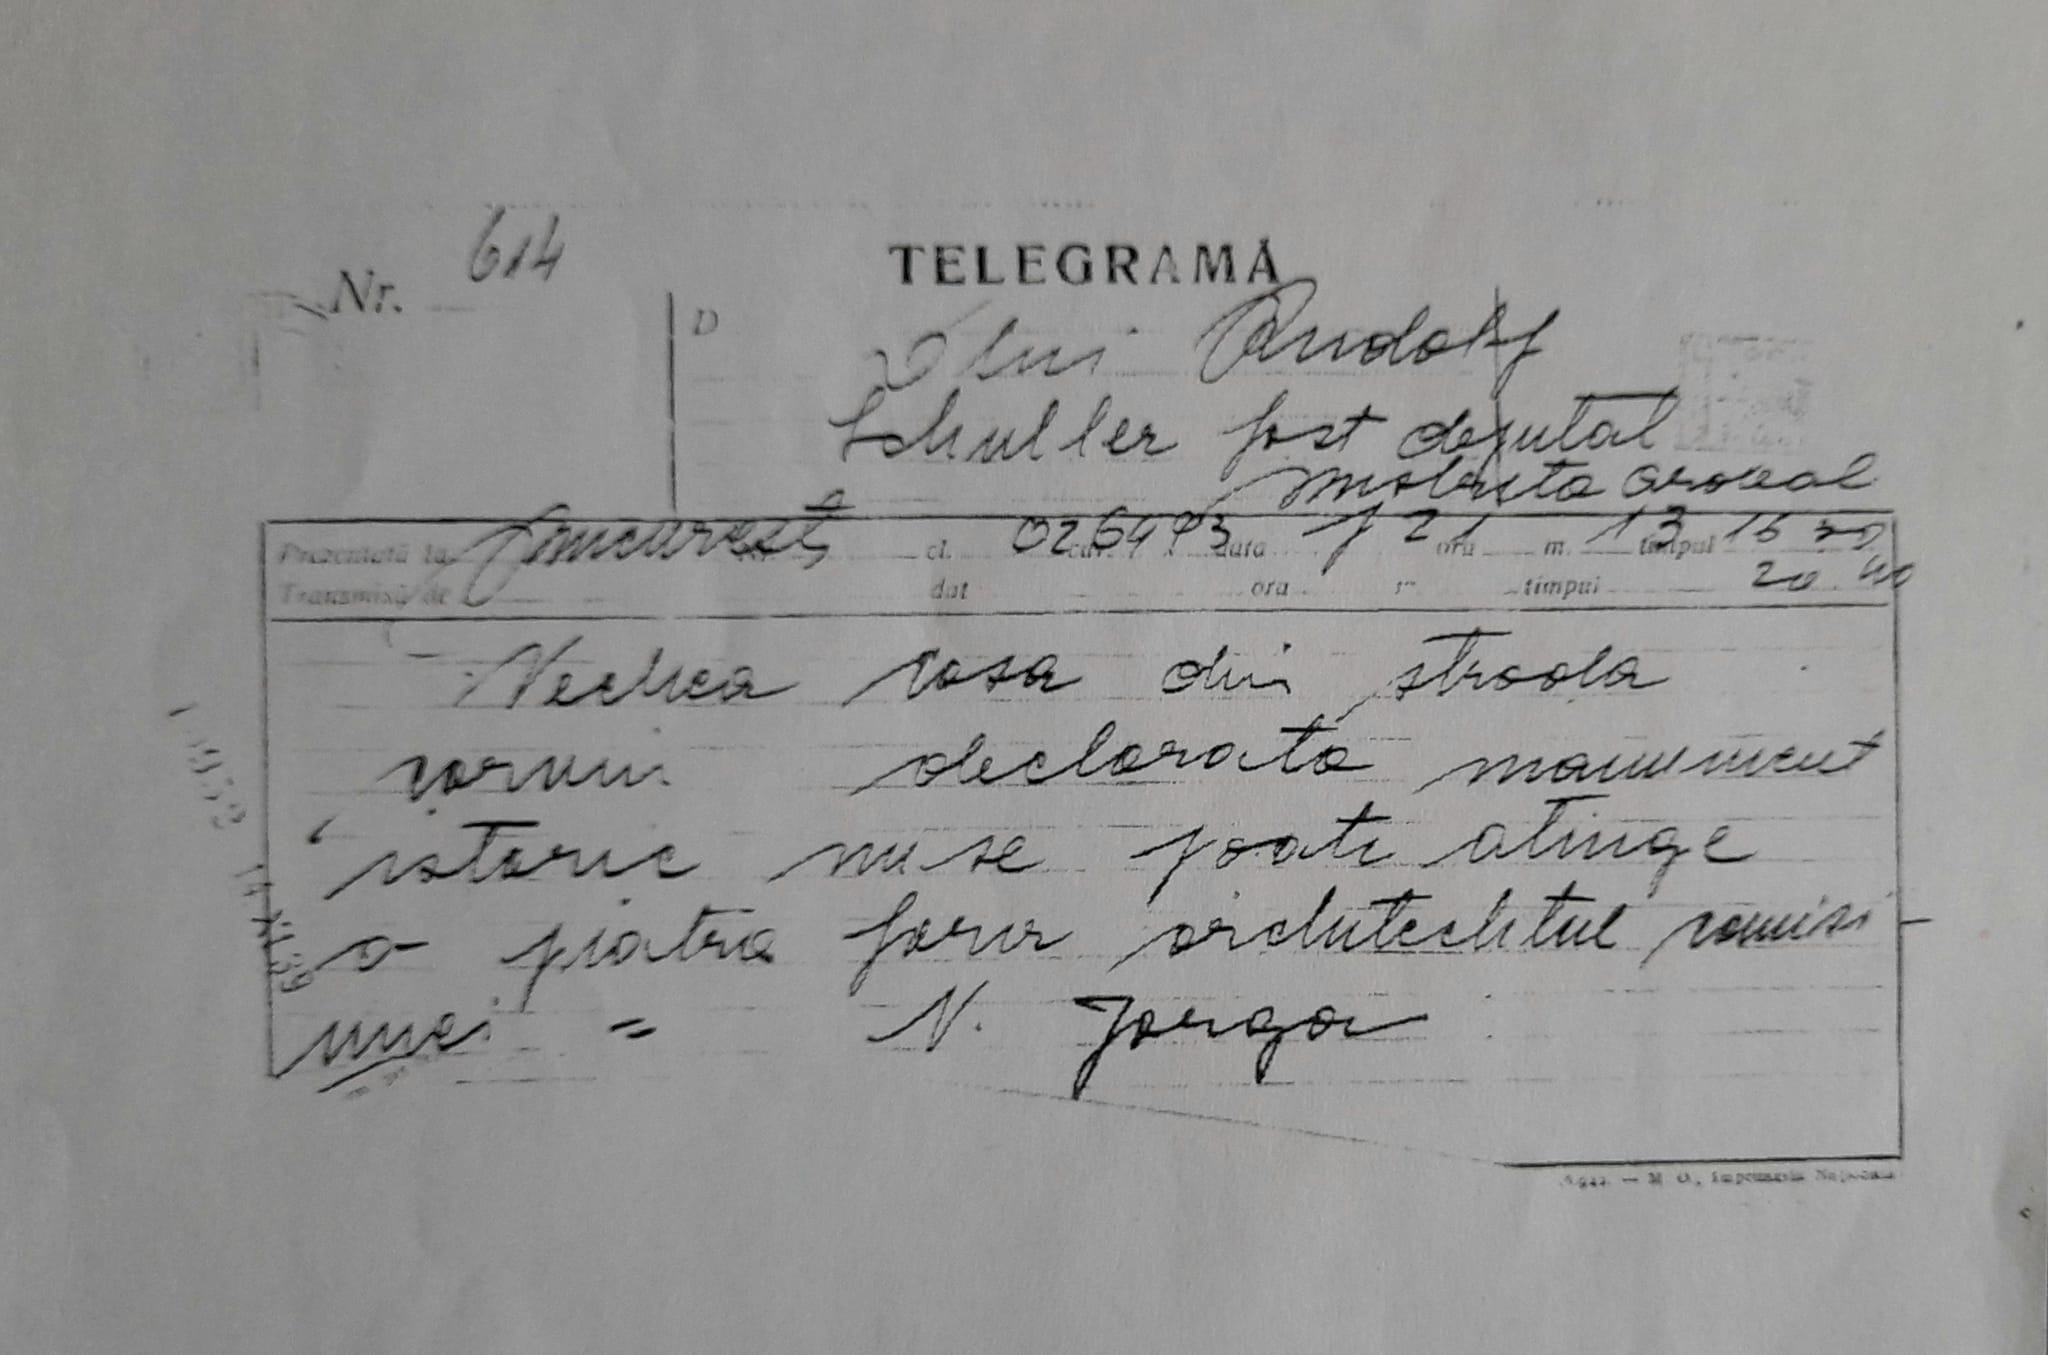 Nr. 614
TELEGRAMĂ
D
Dlui Rudolf
Schuller fost deputat
Prezentată la Bucuresti cl. 026493 data 21 ora m. 13 timpul 15 30
Transmisă de dat ora timpul 20 40
Vechea casa din strada
declarata monument
istoric nu se poate atinge
o piatra fara architechtul comisi
unei = N. Jorga